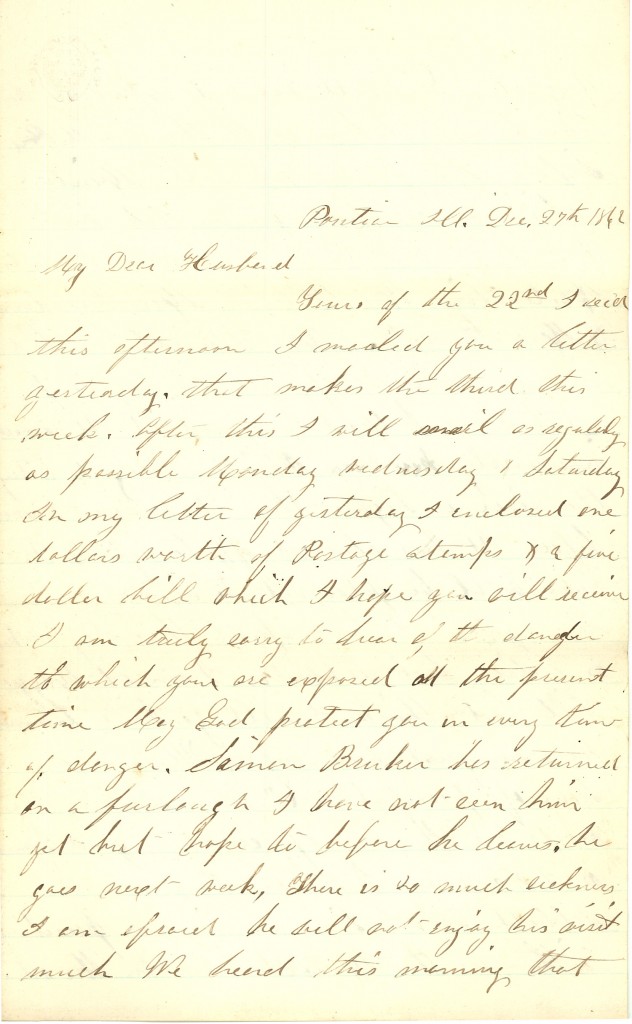 Pontiac Ill. Dec. 27th 1862
My Dear Husband
Yours of the 22nd I recd
this afternoon I mailed you a letter
yesterday. that makes the third this
week. After this I will mail as regularly
as possible Monday Wednesday & Saturday
In my letter of yesterday I enclosed one
dollars worth of Postage stamps & a five
dollar bill which I hope you will receive
I am truly sorry to hear of the danger
to which you are exposed at the present
time May God protect you in every time
of danger. Simon Bruker has returned
on a furlough I have not seen him
yet but hope to before he leaves. he
goes next week, There is so much sickness
I am afraid he will not enjoy his visit
much We heard this morning that